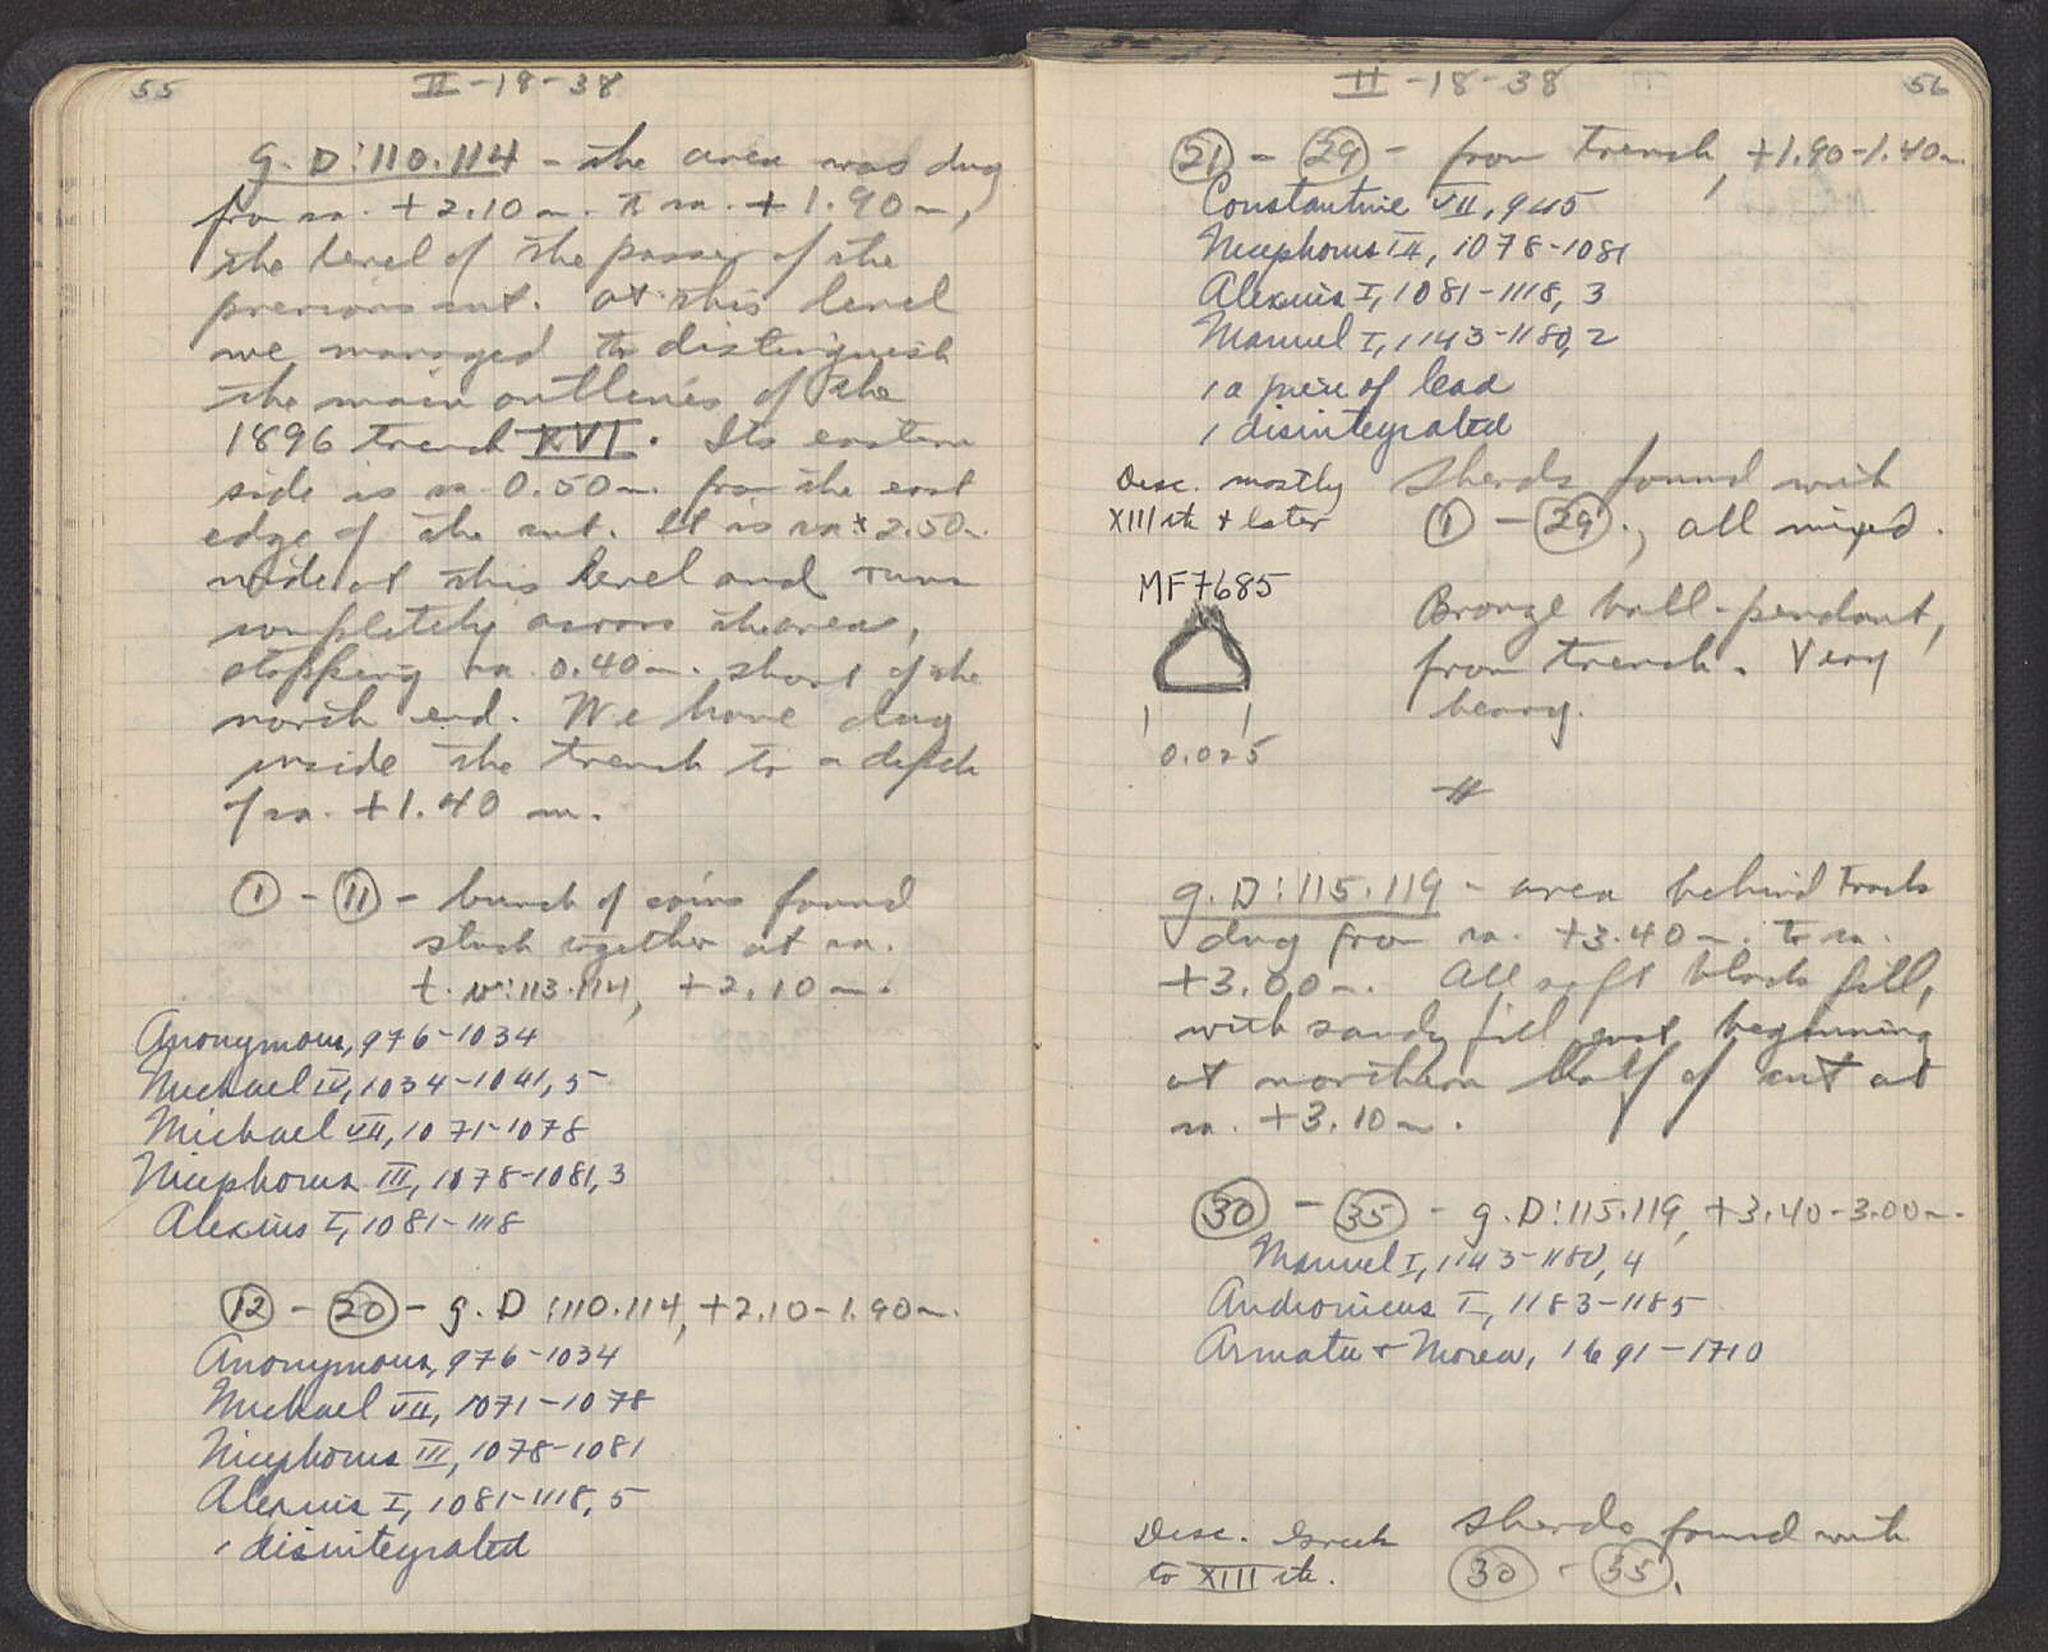 55
II-18-38
g. D:110.114 - the area was dug
from ca. +2.10 m. to ca. +1.90 m.,
the level of the passer of the
previous cut. At this level
we managed to distinguish
the main outlines of the
1896 trench XVI. Its eastern
side is ca 0.50 m. from the east
edge of the cut. It is ca. 2.50 m.
wide at this level and runs
completely across the area,
stopping ca. 0.40 m. short of the
north end. We have dug
inside the trench to a depth
of ca. +1.40 m.
1 - 11 - bunch of coins found
stuck together at ca.
t. D:113.114, +2.10 m.
Anonymous, 976-1034
Michael IV, 1034-1041, 5
Michael VII, 1071-1078
Nicephorus III, 1078-1081, 3
Alexius I, 1081-1118
12 - 20 - g. D:110.114, +2.10-1.90 m.
Anonymous, 976-1034
Michael VII, 1071-1078
Nicephorus III, 1078-1081
Alexius I, 1081-1118, 5
1 disintegrated
II-18-38
56
21 - 29 - from trench, +1.90-1.40 m.
Constantine VII, 945
Nicephorus III, 1078-1081
Alexius I, 1081-1118, 3
Manuel I, 1143-1180, 2
1 a piece of lead
1 disintegrated
Disc. mostly
XIIIth + later
Sherds found with
1 - 29, all mixed.
MF7685
0.025
Bronze ball-pendant,
from trench. Very
heavy.
g. D:115.119 - area behind track
dug from ca. +3.40 m. to ca.
+3.00 m. All soft black fill,
with sandy fill just beginning
at northern half of cut at
ca. +3.10 m.
30 - 35 - g. D:115.119, +3.40-3.00 m.
Manuel I, 1143-1180, 4
Andronicus I, 1183-1185
Armata + Morea, 1691-1710
Disc. Greek
to XIIIth.
Sherds found with
30 - 35.